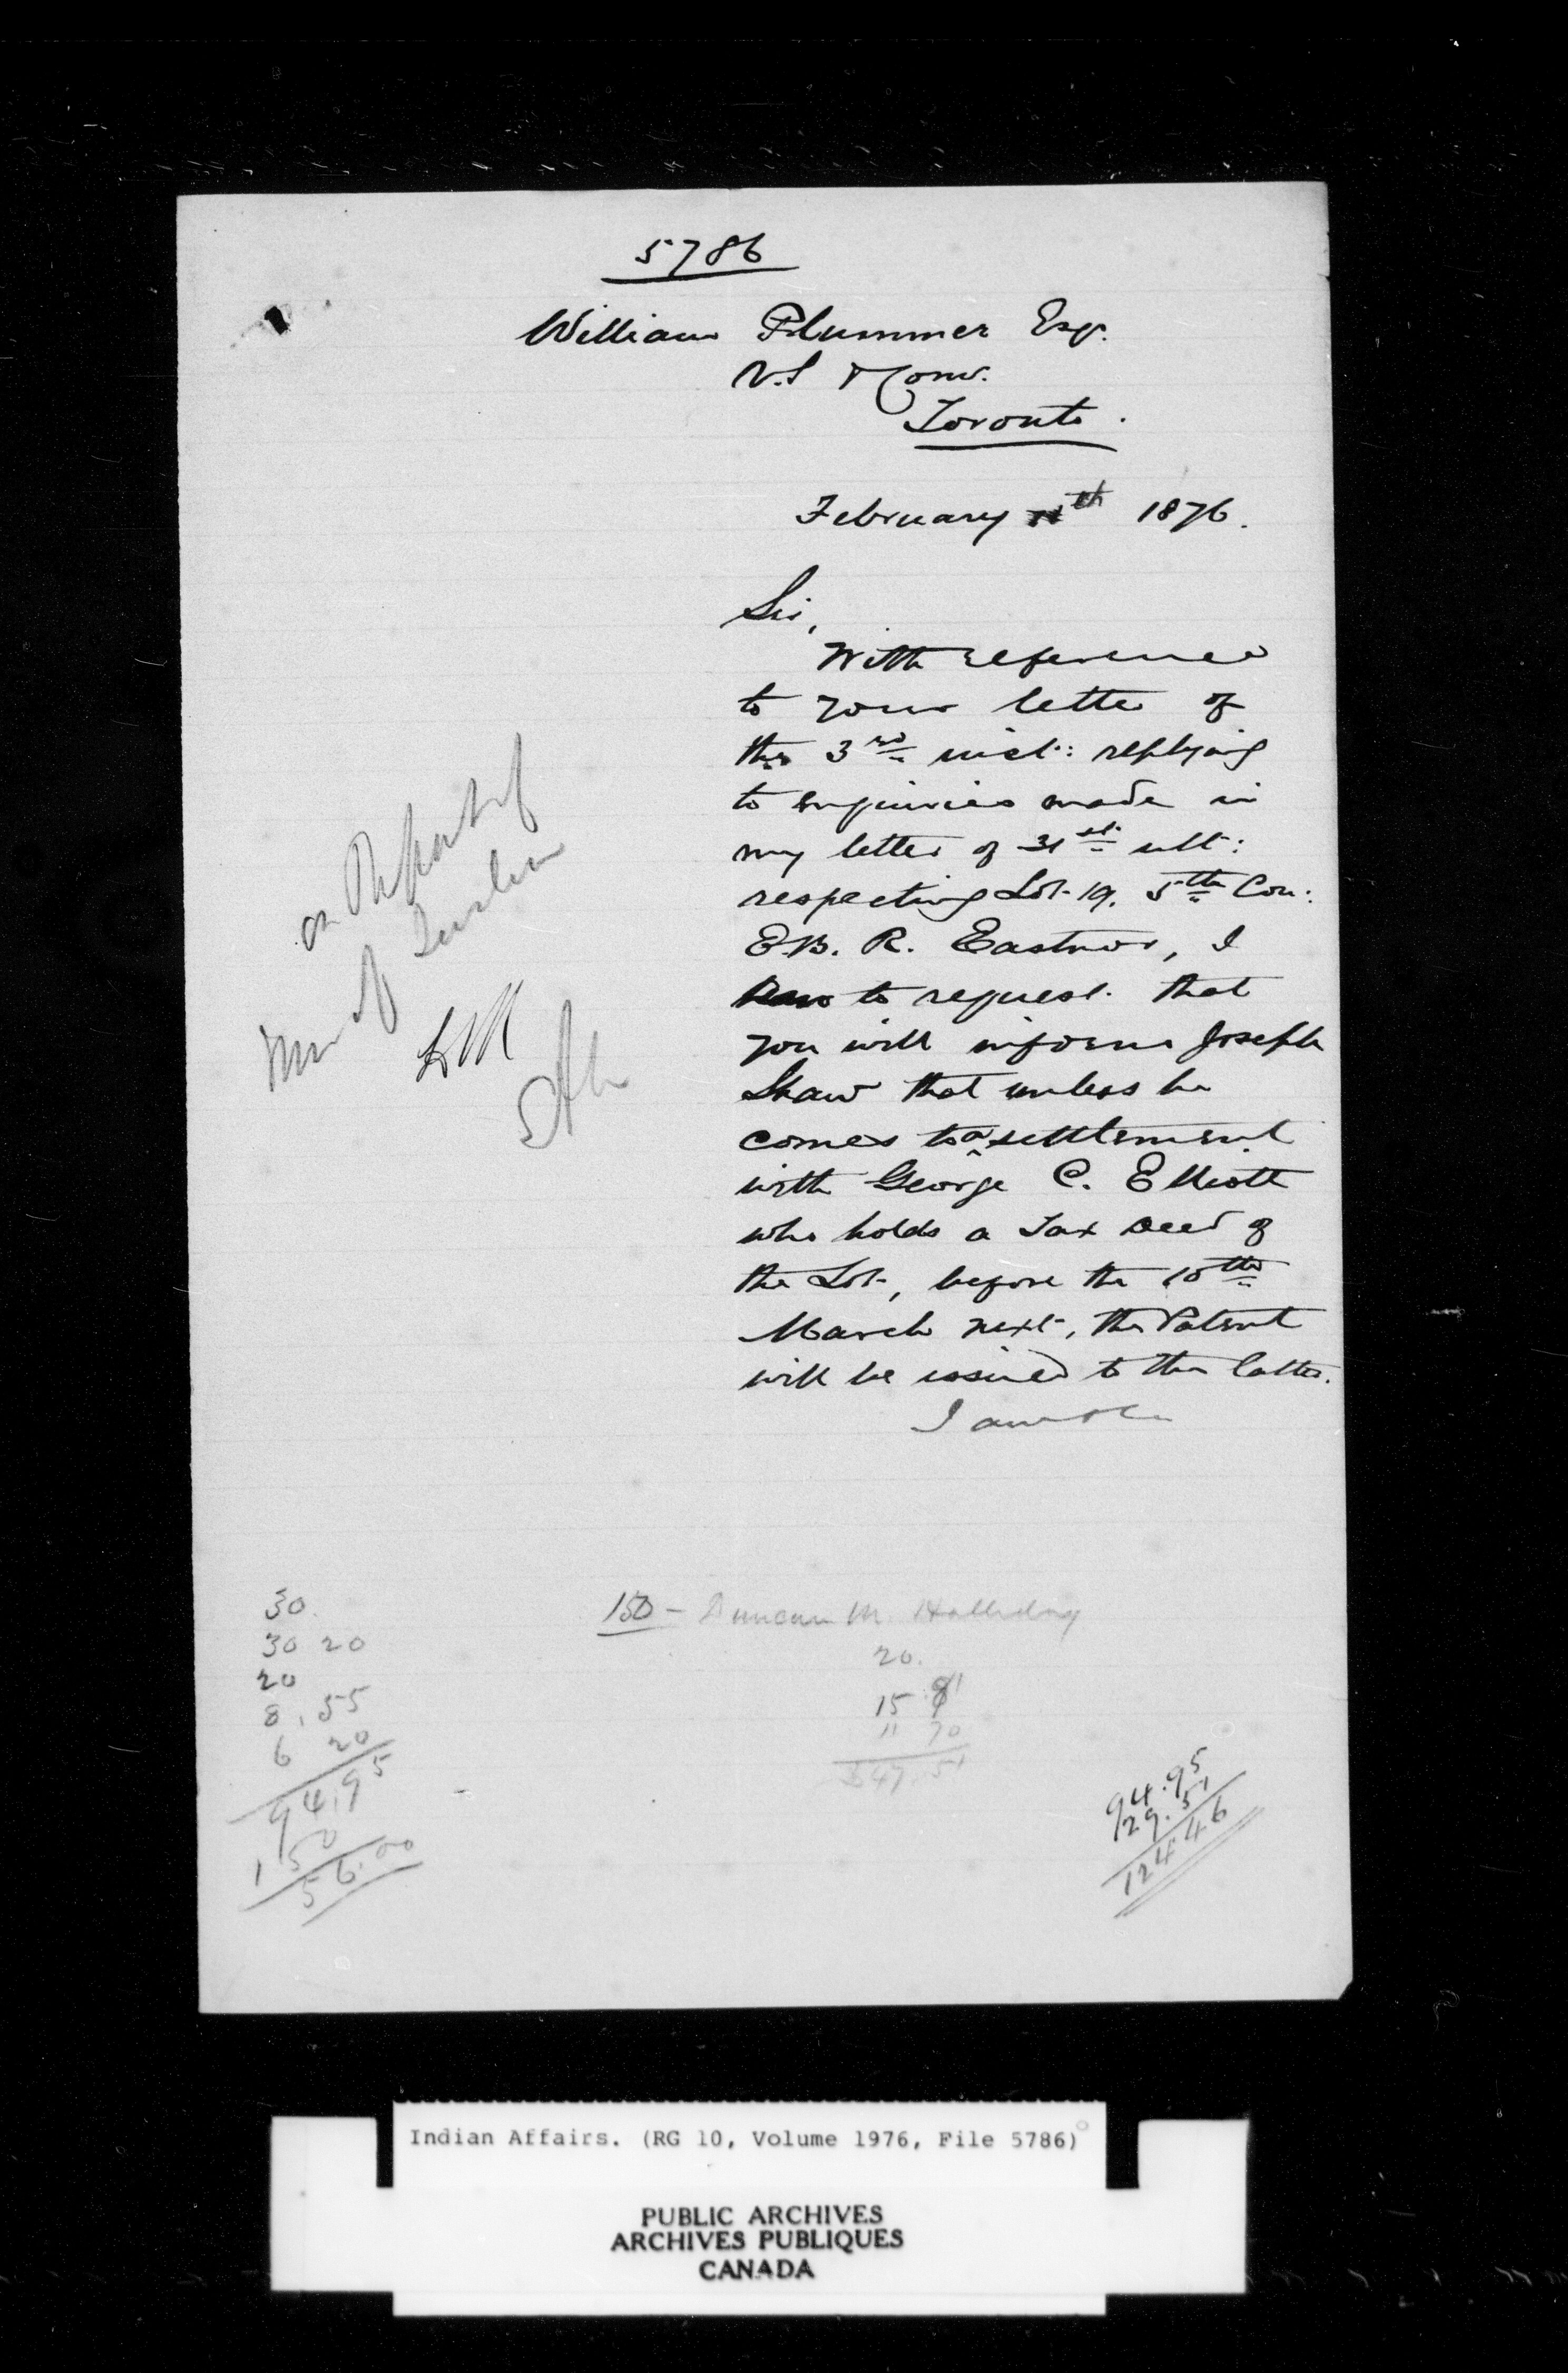 5786
William Plummer Esq.
V.S & Com.
Toronto.
February th 1876.
Sir,
With reference
to your letter of
the 3rd inst: replying
to enquiries made in
my letter of 31st ult:
respecting Lot 19. 5th Con:
E.B.R. Eastnor, I
to request that
you will inform Joseph
Shaw that unless he
comes to a settlement
with George C. Elliott
who holds a Tax Deed of
the Lot, before the 10th
March next, the Patent
will be issued to the latter.
I am &c
on
of
30
30 20
20
8.55
6 20
94.95
150
56.00
150 - Duncan M. Halliday
20.
15 81
11 70
$47.51
94.95
29.51
124.46
Indian Affairs. (RG 10, Volume 1976, File 5786)
PUBLIC ARCHIVES
ARCHIVES PUBLIQUES
CANADA